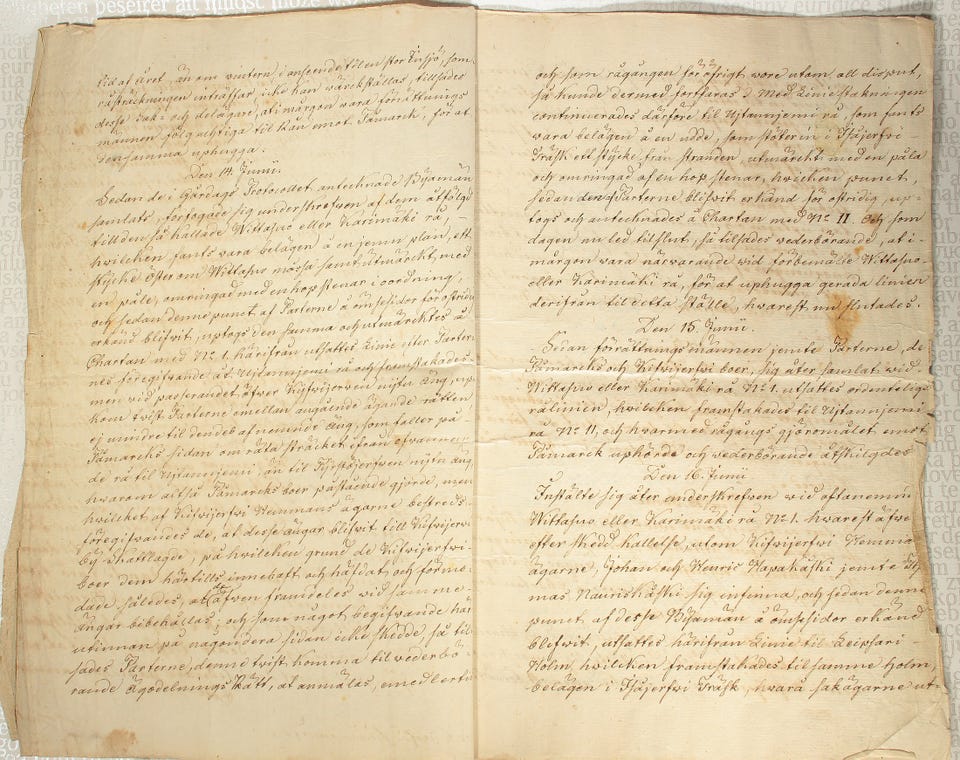 tid at året, än om vintern, i anseende til en stor Insjö, som
råsträckningen inträffar icke kan wärckställas, tillsades
desse sak- och delägare, at i morgon vara förrättnings
männen följagtiga til Rån emot Tämarck, för at
densamma uphugga.
Den 14. Junii.
Sedan de i Gårdags Protocollet antecknade Byamän
samlats, förfogade sig underskrefven af dem åtfölgd
till den så kallade Wittasuo eller Karimäki rå,
hwilcken fants vara belägen å en jemn plan, ett
stycke öster om Wittasuo mossa samt utmärckt, med
en påle, omringad med en hop stenar i oordning,
och sedan denne punct af Parterne å ömse sidor för ostridig
erkänd blifwit, uptogs den samma och utmärcktes å
Chartan med No 1. härifrån utsattes Linie efter Parter
nes föregifwande åt Ujtannjemi rå och framstakades
men vid påstraadet, öfwer Kijfwijerwen nijtu äng, up
kom twist Parterne emellan angående ägande rätten
ej mindre til den deb afnemende Äng, som faller på
Tämarcks sidan om räta sträcket ifrån ofwannem
de rå til Ujtannjemi, än til Kijfwijerfwen nijtu äng
hwarom altså Tämarcks boer påstående gjorde, men
hwilcket af Kifwijerfwi Hemmans ägarne bestreds
föregifwandes de, at desse ängar blifwit till Kifwijerwi
by Skattlagde, på hwilcken grund de Kifwijerfwi
boer dem härtills innehaft och häfdat, och förme-
dade således, at de äfwen framdeles wid samme
ängar bibehållas; och som något begifwande här
utinnan på någondera sidan icke skedde, så til
sades Parterne, denne twist komma til wederbö-
rande Ägodelnings Rätt, at anmälas, emedlertid
och som rågången för öfrigt wore utom all disput,
så kunde dermed fortfaras. Med Linie stakningen
continuerades därföre til Ujtannjemi rå, som fants
vara belägen å en udde, som stöter in i Isojerfwi
Träsk ett stycke från stranden, utmärckt med en påla
och omringad af en hop stenar, hwilcken punct,
sedan den af Parterne blifwit erkänd för ostridig, up-
togs och antecknades å Chartan med No II. Och som
dagen nu led til slut, så tilsades wederbörande, at i
morgon wara närwarande wid förbemälte Wittasuo
eller Karimäki rå, för at uphugga gerada linien
derifrån til detta ställe, hwarest nu slutades.
Den 15. Junii.
Sedan förrättningsmännen jemte Parterne, de
Tämarcks och Kifwijerfwi boer, sig åter samlat wid
Wittasuo eller Karimäki rå No 1. utsattes ordentelige
rålinien, hwilcken framstakades til Ujtannjemi
rå No 11, och hwarmed rågångs gjöromålet emot
Tämarck uphörde och wederbörande åtskilgdes
Den 16. Junii
Instälte sig åter underskrefwen wid oftanemde
Wittasuo eller Karimäki rå No 1. hwarest äfwen
efter skedd kallelse, utom Kifwijerfwi Hemma
ägarne, Johan och Henric Hapakåski jemte
mas Nauriskåski sig infunno, och sedan denne
punct af desse Byamän å ömse sidor erkänd
blefwit, utsattes härifrån Linie til Leipsari
Holm, hwilcken framstakades til samme holm,
belägen i Isojerfwi Träsk, hwarå sakägarne ut-